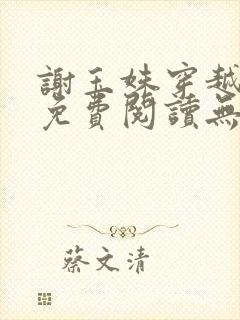 謝玉妹穿越
免費閱讀無
蔡文清